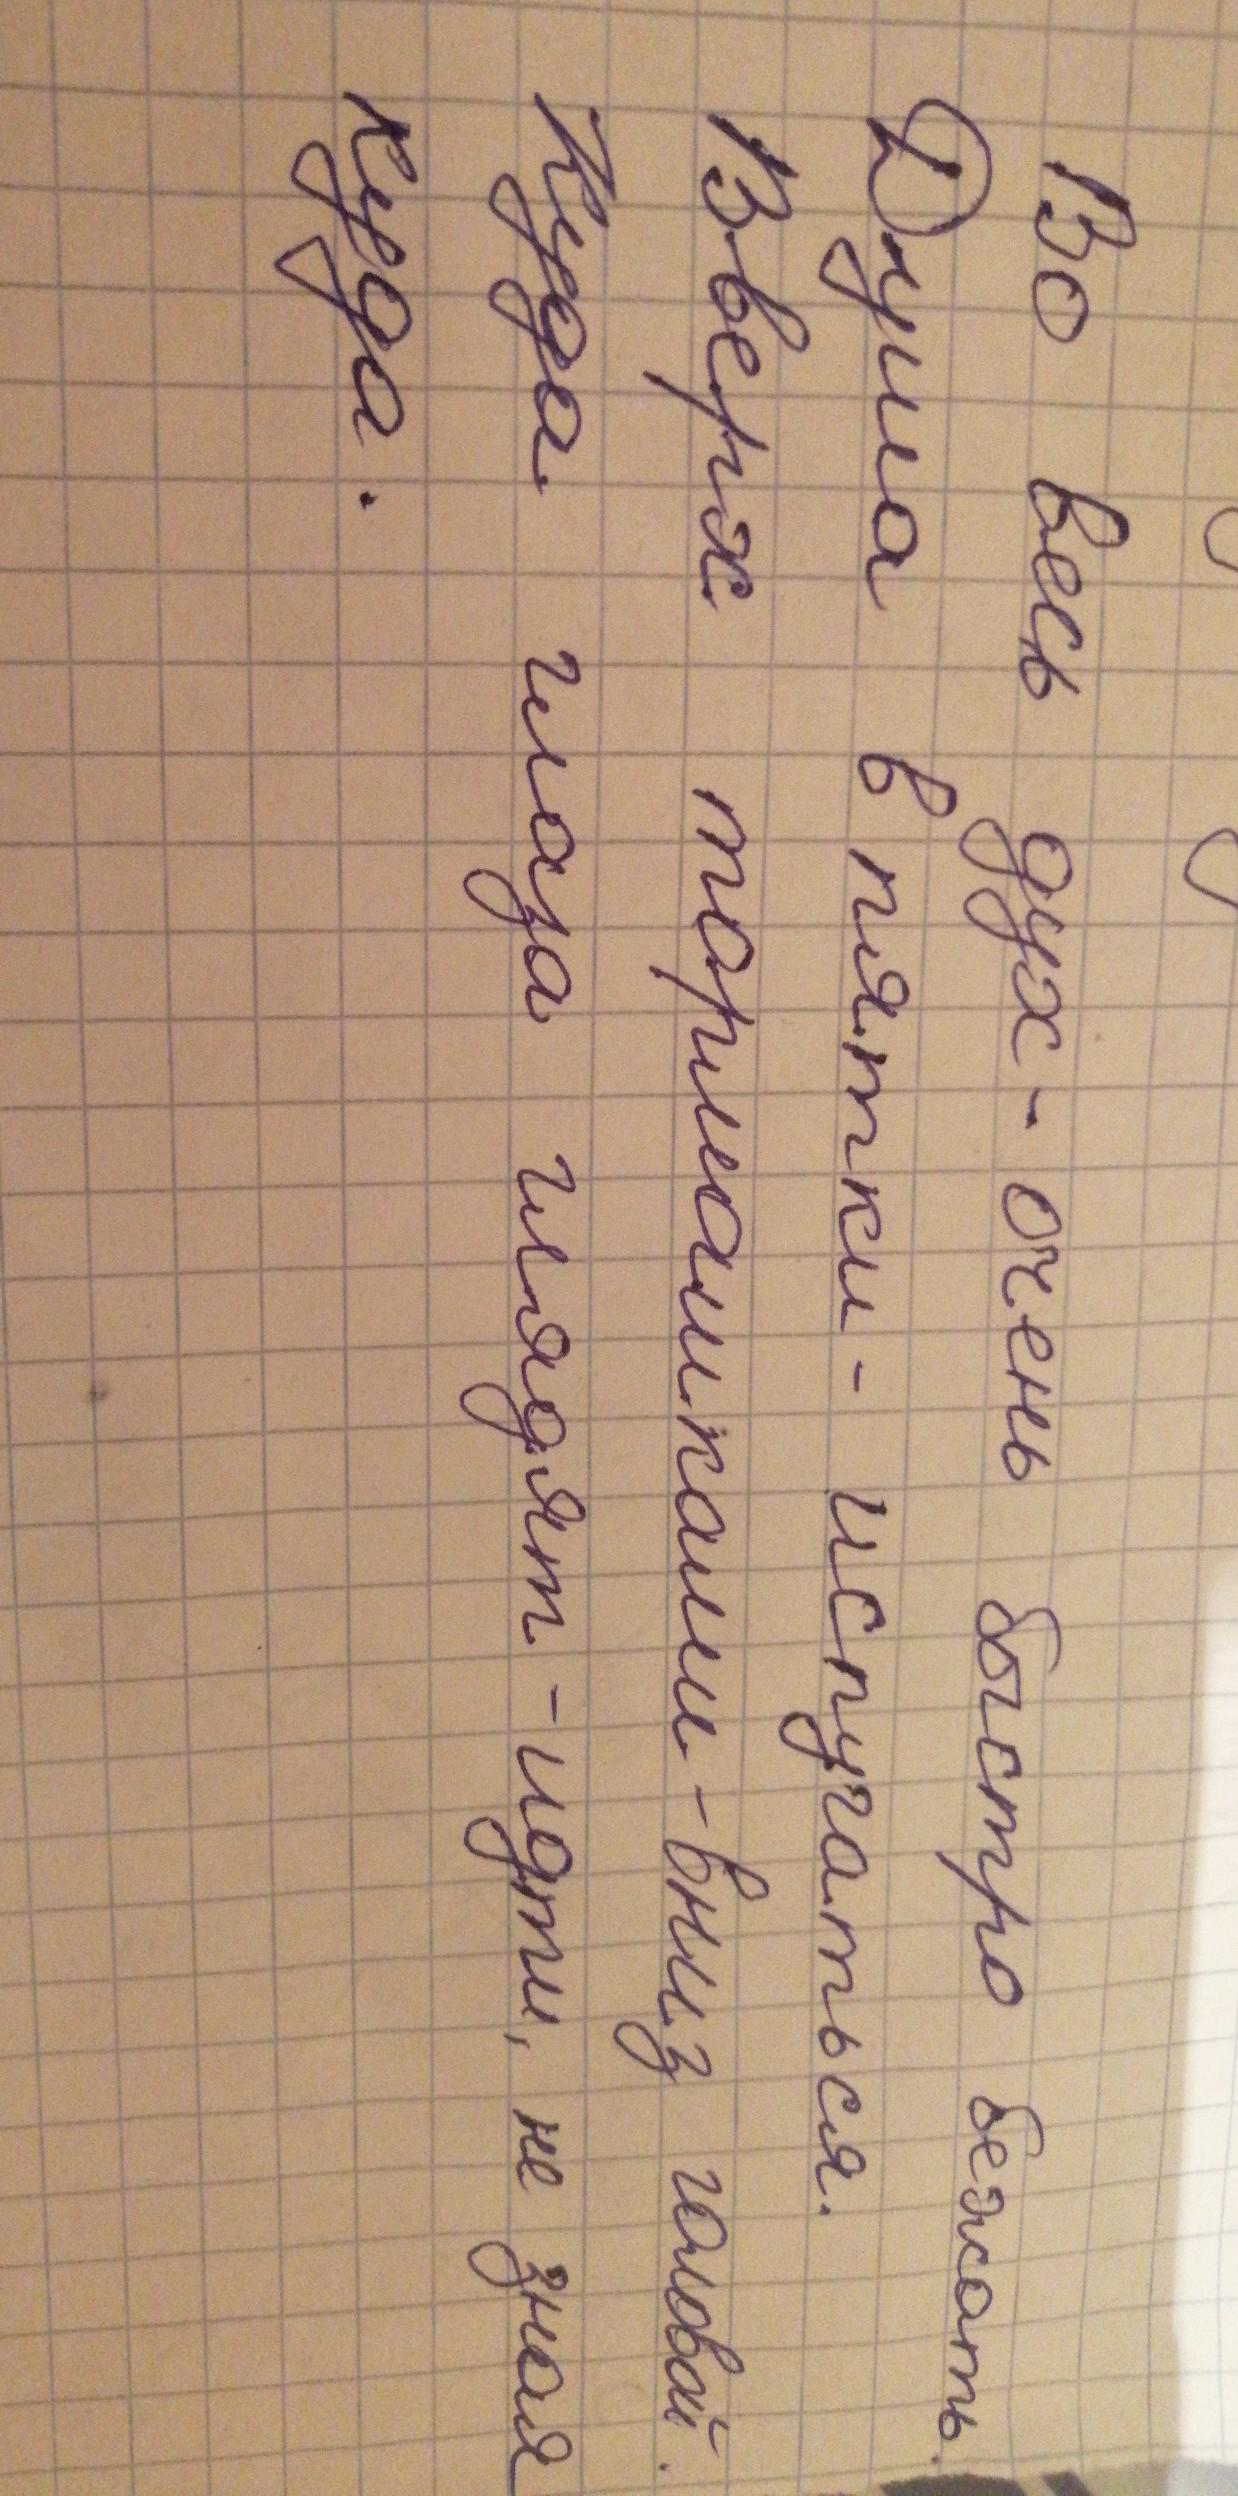 Во весь дух - очень быстро бежать.
Душа в пятки - испугаться.
Вверх тормашками - вниз головой.
Куда глаза глядят - идти, не зная
куда.